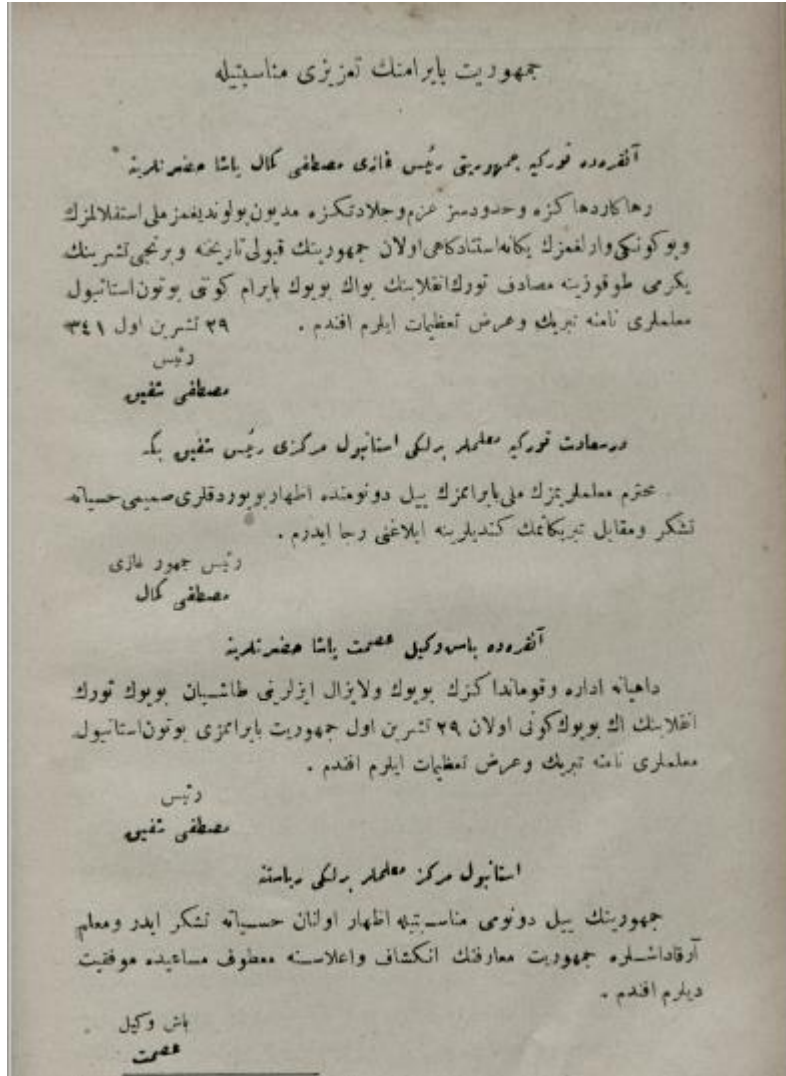 جمهوریت بایرامنك تعزیزی مناسبتیله
آنقره‌ده تورکیه جمهوریتی رئیس غازی مصطفی کمال پاشا حضرتلرینه
رهاکاردهاکزه وحدودسز عزم وجلادتکزه مدیون بولوندیغمز ملی استقلالمزك
وبوکونکی وارلغمزك یکانه استنادکاهی اولان جمهوریتك قبولی تاریخنه وبرنجی تشرینك
یکرمی طوقوزینه مصادف تورك انقلابنك بواك بویوك بایرام کوننی بوتون استانبول
معلملری نامنه تبریك وعرض تعظیمات ایلرم افندم . ٢٩ تشرین اول ٣٤١
رئیس
مصطفی شفیق
درسعادت تورکیه معلملر برلکی استانبول مرکزی رئیس شفیق بکه
محترم معلملریمزك ملی بایرامزك ییل دونومنده اظهار بویوردقلری صمیمی حسیاته
تشکر ومقابل تبریکاتمك کندیلرینه ابلاغنی رجا ایدرم .
رئیس جمهور غازی
مصطفی کمال
آنقره‌ده باش وکیل عصمت پاشا حضرتلرینه
داهیانه اداره وقوماندا کزك بویوك ولایزال ایزلرینی طاشیان بویوك تورك
انقلابنك اك بویوك کونی اولان ٢٩ تشرین اول جمهوریت بایرامزی بوتون استانبول
معلملری نامنه تبریك وعرض تعظیمات ایلرم افندم .
رئیس
مصطفی شفیق
استانبول مرکز معلملر برلکی ریاستنه
جمهوریتك ییل دونومی مناسبتیله اظهار اولنان حسیاته تشکر ایدر ومعلم
آرقاداشلره جمهوریت معارفنك انکشاف واعلاسنه معطوف مساعیده موفقیت
دیلرم افندم .
باش وکیل
عصمت